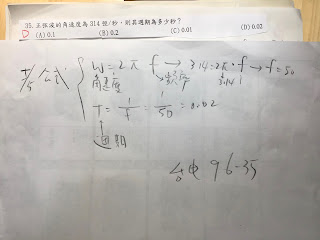 35. 正弦波的角速度為 314 徑/秒，則其週期為多少秒？
D (A) 0.1 (B) 0.2 (C) 0.01 (D) 0.02
考公式
ω = 2π f → 314 = 2π · f → f = 50
角速度 頻率 3.14
T = 1/f = 1/50 = 0.02
週期
台電 96-35